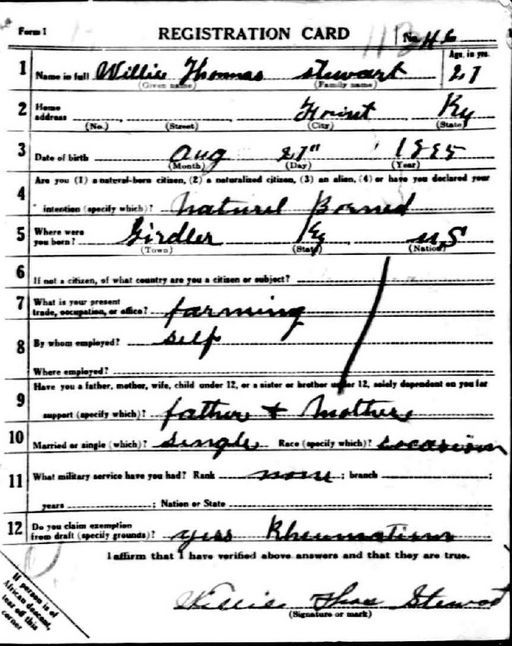 Form 1 REGISTRATION CARD No. 46
1 Name in full Willie Thomas Stewart Age, in yrs. 27
(Given name) (Family name)
2 Home address Ky
(No.) (Street) (City) (State)
3 Date of birth Aug 27"
(Month) (Day) (Year)
Are you (1) a natural-born citizen, (2) a naturalized citizen, (3) an alien, (4) or have you declared your
4 intention (specify which)? Naturel Borned
5 Where were you born? Girdler Ky US
(Town) (State) (Nation)
6 If not a citizen, of what country are you a citizen or subject?
7 What is your present trade, occupation, or office? farming
8 By whom employed? self
Where employed?
9 Have you a father, mother, wife, child under 12, or a sister or brother under 12, solely dependent on you for
support (specify which)? father + Mother
10 Married or single (which)? single Race (specify which)?
11 What military service have you had? Rank none ; branch ;
years ; Nation or State
12 Do you claim exemption from draft (specify grounds)? yess Rheumatism
I affirm that I have verified above answers and that they are true.
Willie Thos Stewart
(Signature or mark)
If person is of
African descent,
tear off this
corner